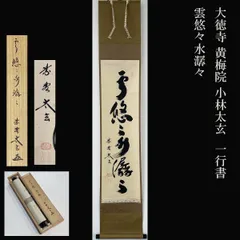 大徳寺 黄梅院 小林太玄 一行書
雲悠々水潺々
雲悠々水潺々
黄梅太玄
雲悠々水潺々
黄梅太玄